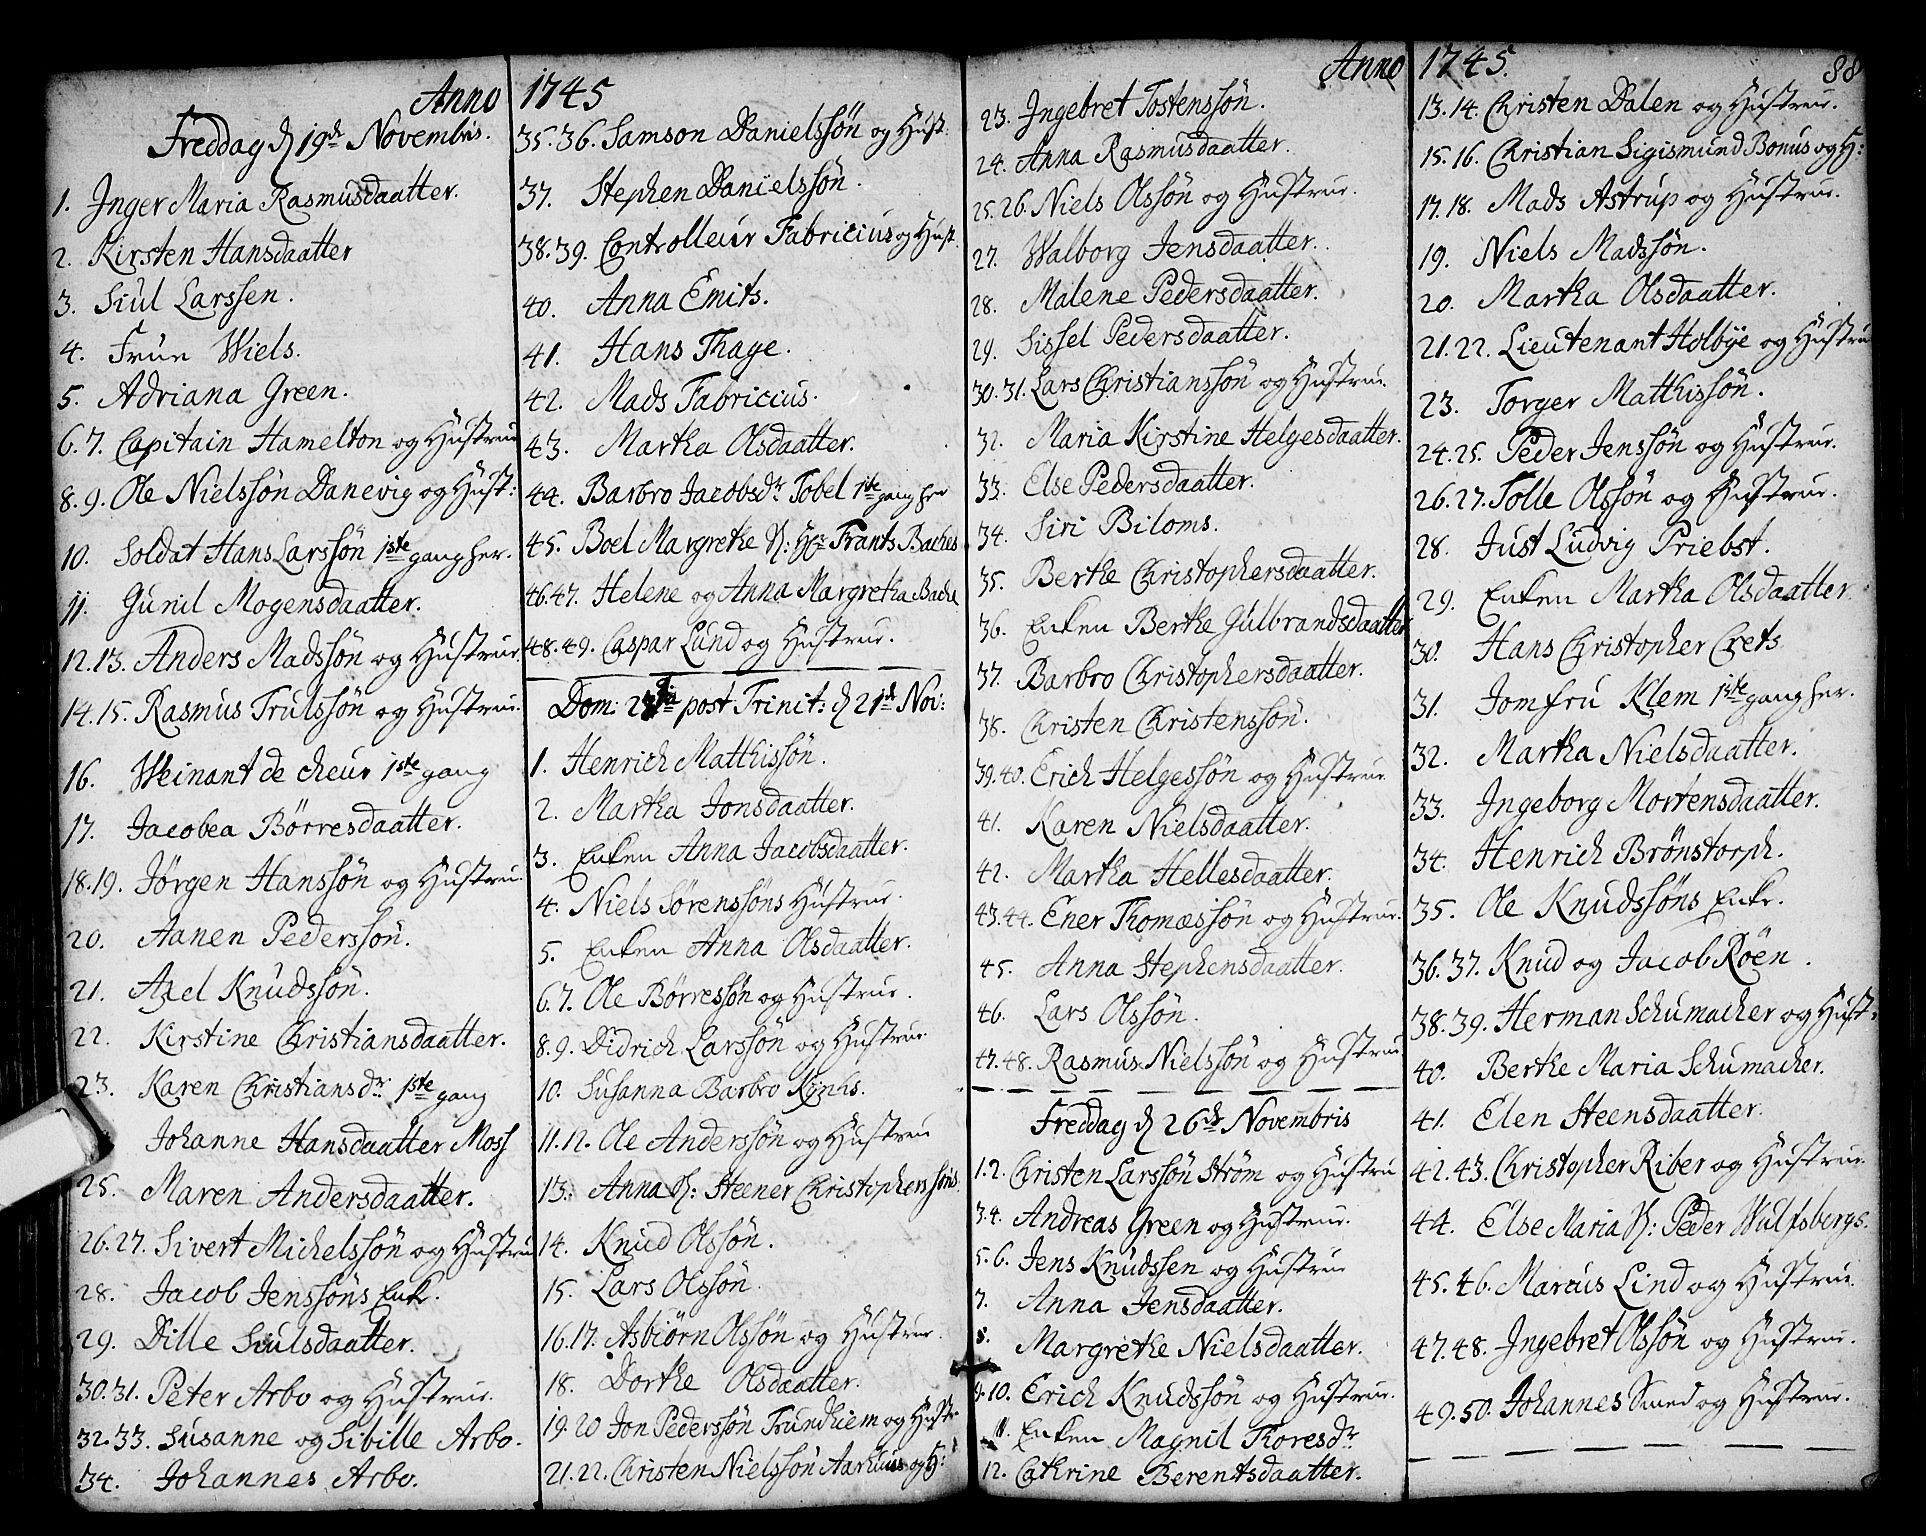 Anno 1745
Freddag d 19de Novembris.
1. Inger Maria Rasmusdaatter.
2. Kirsten Hansdaatter
3. Siul Larssen.
4. Frue Wiels.
5. Adriana Green.
6.7. Capitain Hamelton og Hustrue
8.9. Ole Nielssøn Danevig og Hust:
10. Soldat Hans Larssøn 1ste gang her.
11. Gunil Mogensdaatter.
12.13. Anders Madssøn og Hustrue
14.15. Rasmus Trulssøn og Hustrue.
16. Weinant de cheur 1ste gang
17. Jacobea Børresdaatter.
18.19. Jørgen Hanssøn og Hustru.
20. Aanen Pederssøn.
21. Axel Knudssøn.
22. Kirstine Christiansdaatter.
23. Karen Christiansdr: 1ste gang
Johanne Hansdaatter Moss
25. Maren Andersdaatter.
26.27. Sivert Michelssøn og Hustru
28. Jacob Jenssøns Enke.
29. Dille Siulsdaatter.
30.31. Peter Arbo og Hustrue.
32.33. Susanne og Sibille Arbo.
34. Johannes Arbo.
35.36. Samson Danielssøn og Hust:
37. Stephen Danielssøn.
38.39. Controlleur Fabricius og Hust.
40. Anna Emits.
41. Hans Thage.
42. Mads Fabricius.
43. Martha Olsdaatter.
44. Barbro Jacobsdr Tobel 1ste gang her
45. Boel Margrethe S: Hr Frants Baches
46.47. Helene og Anna Margretha Bache
48.49. Caspar Lund og Hustrue.
Dom: post Trinit: d 21de Nov:
1. Henrich Matthissøn.
2. Martha Jonsdaatter.
3. Enken Anna Jacobsdaatter.
4. Niels Sørenssøns Hustrue.
5. Enken Anna Olsdaatter.
6.7. Ole Børressøn og Hustrue.
8.9. Didrich Larssøn og Hustrue
10. Susanna Barbro
11.12. Ole Anderssøn og Hustrue
13. Anna S: Steener Christopherssøns.
14. Knud Olssøn.
15. Lars Olssøn.
16.17. Asbiørn Olssøn og Hustrue.
18. Dorthe Olsdaatter.
19.20 Jon Pederssøn Trundhiem og Hustr
21.22. Christen Nielssøn Aarhuus og H:
Anno 1745. 88
23. Ingebret Tostenssøn.
24. Anna Rasmusdaatter.
25.26. Niels Olssøn og Hustrue.
27. Walborg Jensdaatter.
28. Malene Pedersdaatter.
29. Sissel Pedersdaatter.
30.31. Lars Christianssøn og Hustrue.
32. Maria Kirstine Helgesdaatter.
33. Else Pedersdaatter.
34. Siri Biloms.
35. Berthe Christophersdaatter.
36. Enken Berthe Gulbrandsdaatter
37. Barbro Christophersdaatter.
38. Christen Christenssøn.
39.40. Erich Helgessøn og Hustrue
41. Karen Nielsdaatter.
42. Martha Hellesdaatter.
43.44. Ener Thomæssøn og Hustrue.
45. Anna Stephensdaatter.
46. Lars Olssøn.
47.48. Rasmus Nielssøn og Hustrue
Freddag d 26de Novembris
1.2. Christen Larssøn Strøm og Hustru
3.4. Andreas Green og Hustrue.
5.6. Jens Knudssen og Hustrue
7. Anna Jensdaatter.
8. Margrethe Nielsdaatter.
9.10. Erich Knudssøn og Hustrue.
11. Enken Magnil Thoresdr
12. Cathrine Berentsdaatter.
13.14. Christen Dalen og Hustrue.
15.16. Christian Sigismund Bonus og H:
17.18. Mads Astrup og Hustrue.
19. Niels Madssøn.
20. Martha Olsdaatter.
21.22. Lieutenant Holbye og Hustru
23. Torger Matthissøn.
24.25. Peder Jenssøn og Hustrue.
26.27. Tolle Olssøn og Hustrue.
28. Just Ludvig Priebst.
29. Enken Martha Olsdaatter
30. Hans Christopher Crets
31. Jomfru Klem 1ste gang her.
32. Martha Nielsdaatter.
33. Ingeborg Mortensdaatter.
34. Henrich Brønstorph.
35. Ole Knudssøns Enke.
36.37. Knud og Jacob Røen.
38.39. Herman Schumacher og Hust:
40. Berthe Maria Schumacher.
41. Elen Steensdaatter.
42.43. Christopher Riber og Hustrue
44. Else Maria S: Peder Wulfsbergs.
45.46. Marcus Lind og Hustrue
47.48. Ingebret Olssøn og Hustrue.
49.50. Johannes Smed og Hustrue.